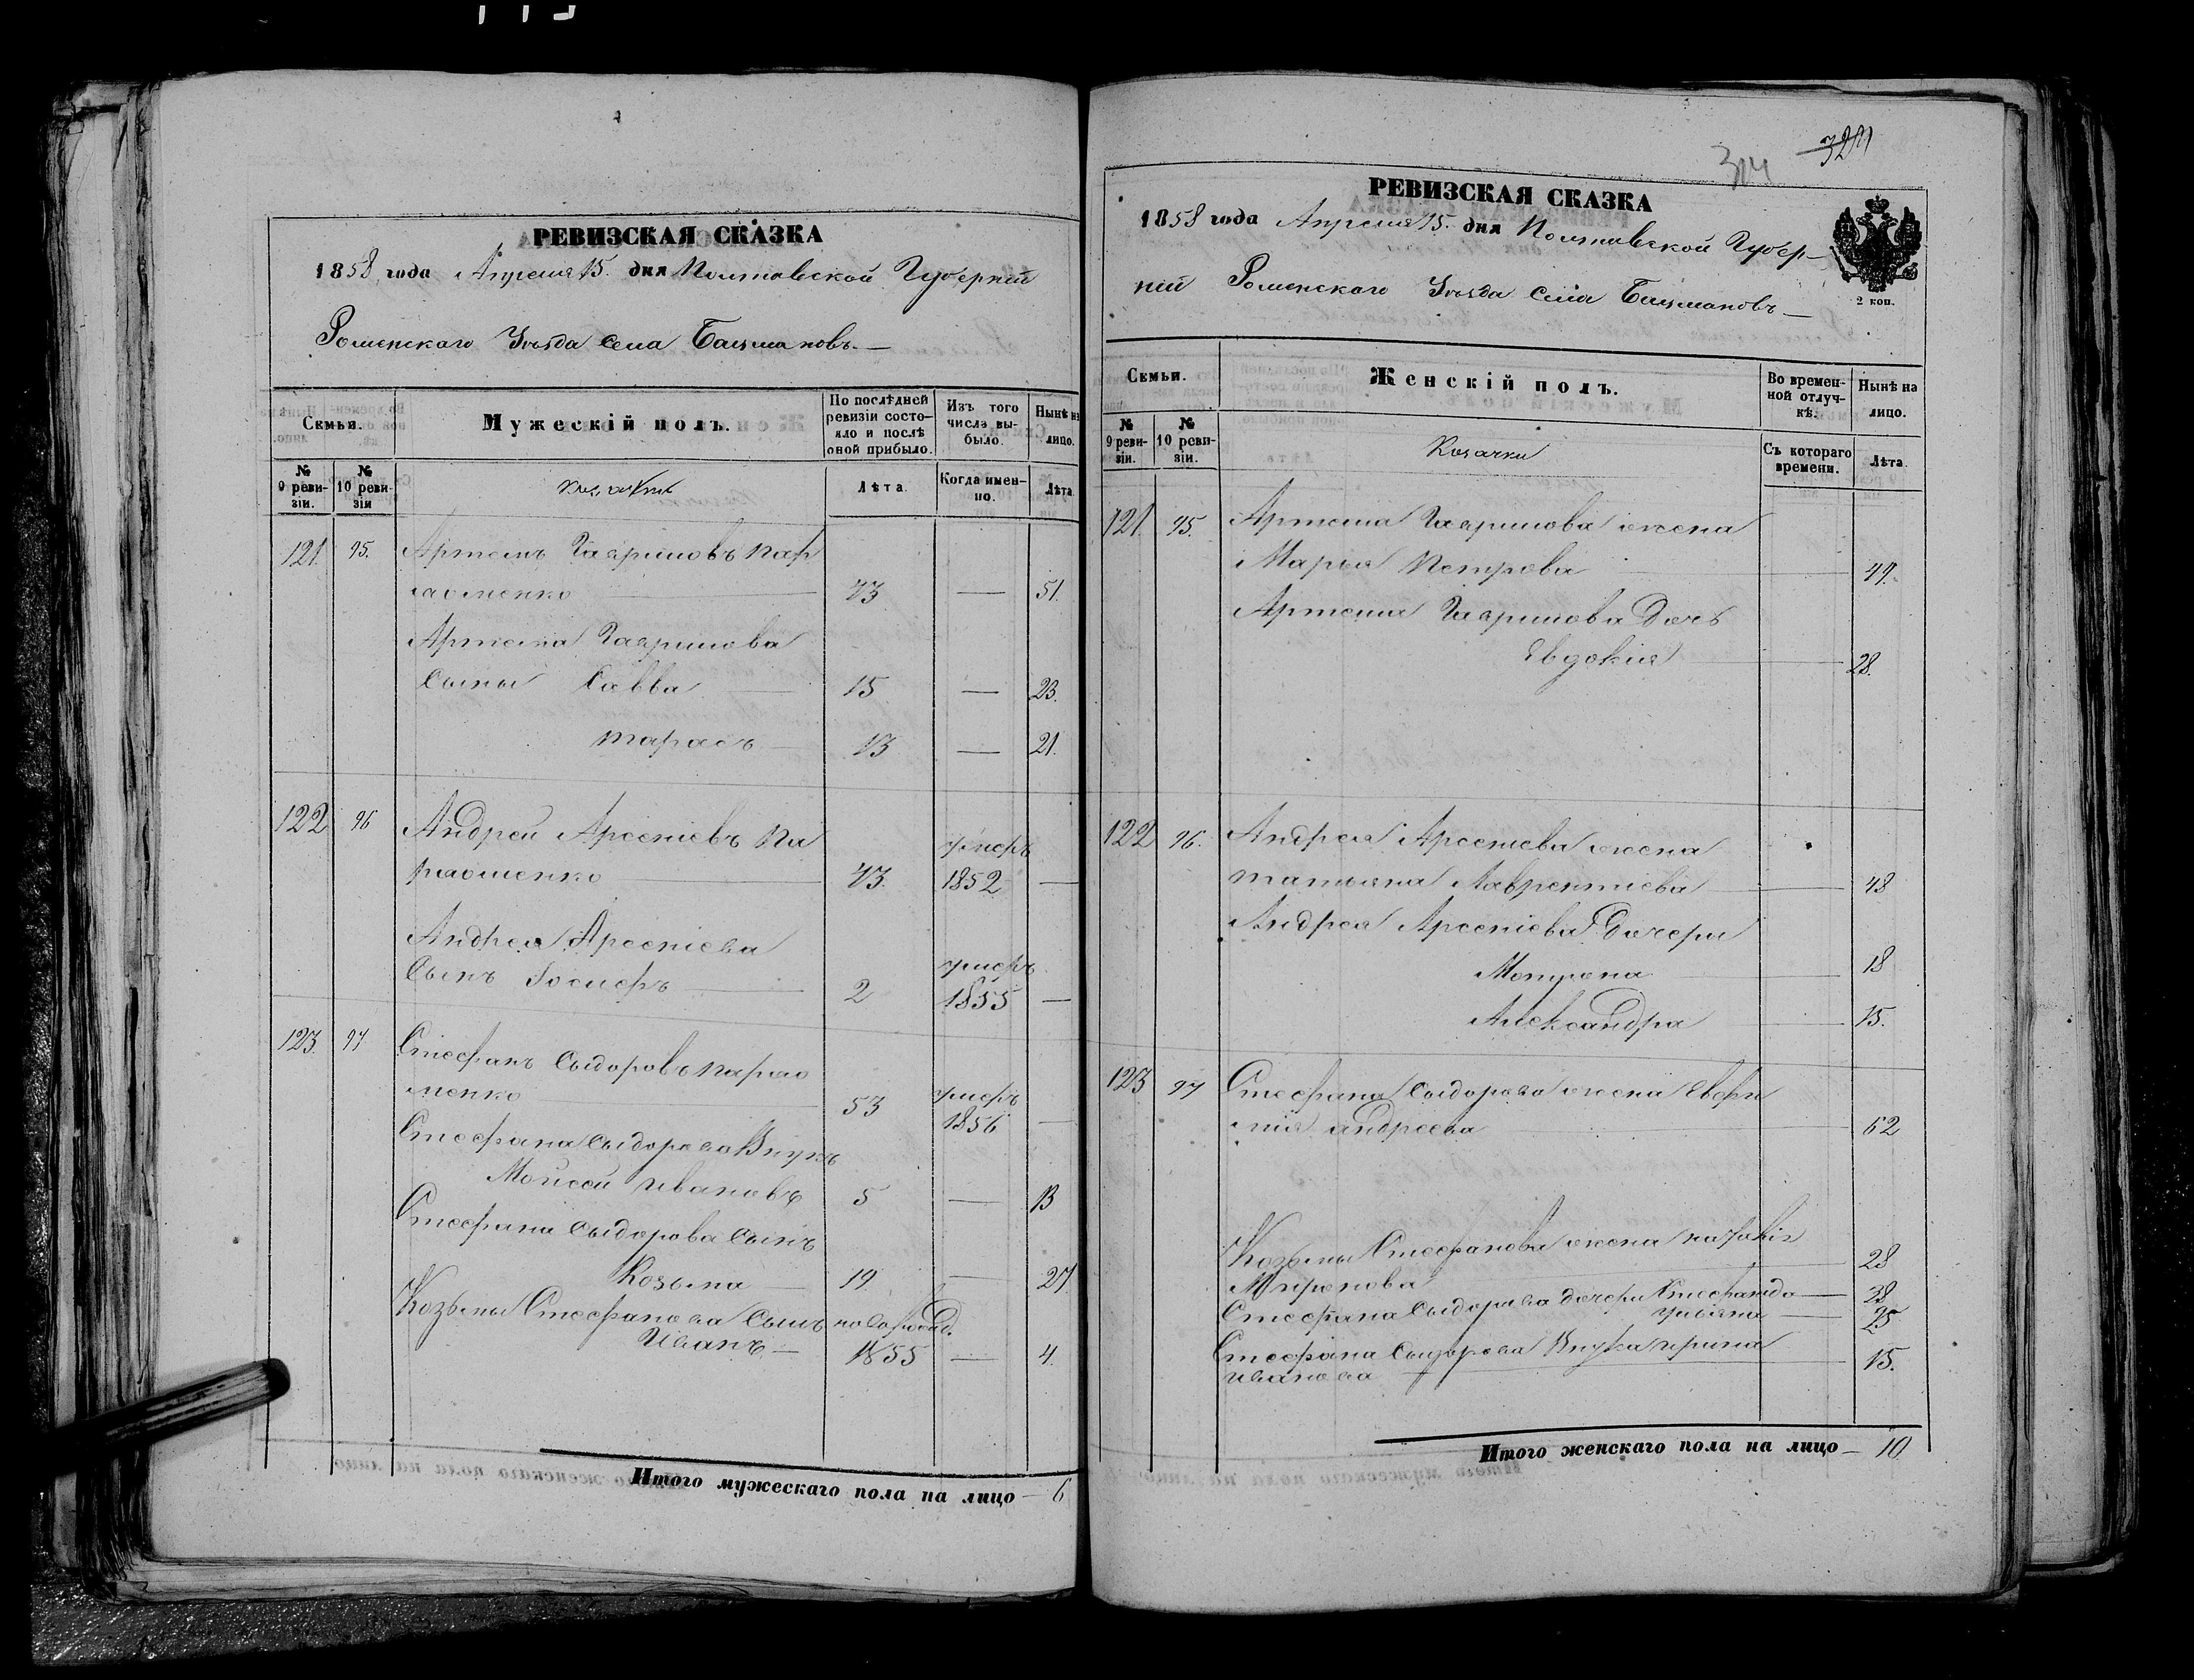 РЕВИЗСКАЯ СКАЗКА
1858 года Апреля 15. дня Полтавской Губерній
Роменскаго Уезда села Бацмановъ.
Семьи.
Мужескій полъ.
По послѣдней ревизіи состояло и послѣ оной прибыло.
Изъ того числа выбыло.
Нынѣ на лицо.
№ 9 ревизіи.
№ 10 ревизіи
Лѣта.
Когда именно.
Лѣта
121. 95. Артемъ Гавриловъ Пар
лаоменко 43 — 51.
Артема Гаврилова
Сыны Савва 15 — 23.
Тарасъ 13 — 21.
122 96 Андрей Арсеніевъ Па
рлаоменко 43. умеръ 1852 —
Андрея Арсеніева
Сынъ 2 умеръ 1855 —
123. 97 Стефанъ Сыдоровъ Парлао
менко 53 умеръ 1856 —
Стефана Сыдорова Внукъ
Мойсей Ивановъ 5 — 13
Стефана Сыдорова Сынъ
Козьма 19 — 27
Козьмы Стефанова Сынъ новорожд.
Иванъ — 1855 — 4.
Итого мужескаго пола на лицо — 6
314
324
РЕВИЗСКАЯ СКАЗКА
1858 года Апреля 15. дня Полтавской Губер-
ній Роменскаго Уезда села Бацмановъ
2 коп.
Семьи.
Женскій полъ.
Во временной отлучкѣ.
Нынѣ на лицо.
№ 9 ревизіи.
№ 10 ревизіи.
Козачки
Съ котораго времени.
Лѣта.
121. 95. Артема Гаврилова жена
Марья Петрова 49.
Артема Гаврилова Дочь
Евдокія 28.
122 96. Андрея Арсеніева жена
Татьяна Лаврентіева 48
Андрея Арсеніева Дочери
Мотрона 18
Александра 15.
123 97 Стефана Сыдорова жена Евфи
мія андреева 62
Козьмы Стефанова жена
Миронова 28
Стефана Сыдорова Дочери Стефанида — 38
Ульяна — 25
Стефана Сыдорова Внука ирина
Иванова 15.
Итого женскаго пола на лицо — 10